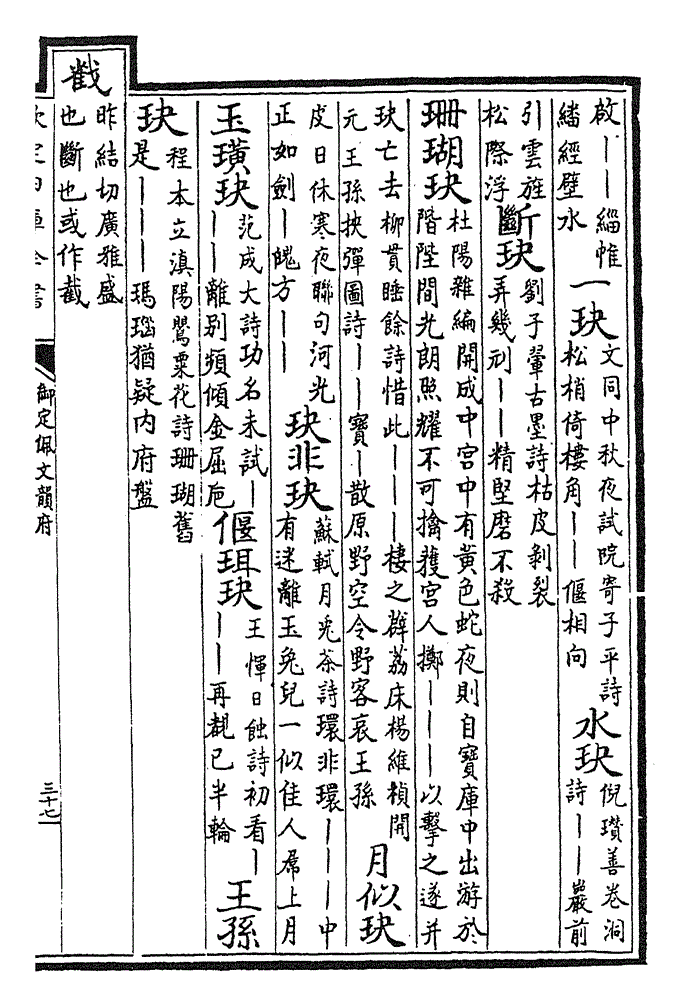 啟——緇帷
繙經壁水
一玦
文同中秋夜試院寄子平詩
松梢倚樓角——偃相向
水玦
倪瓚善卷洞
詩——巖前
引雲旌
松際浮
斷玦
劉子翬古墨詩枯皮剝裂
弄幾刓——精堅磨不殺
珊瑚玦
杜陽雜編開成中宮中有黃色蛇夜則自寶庫中出游於
階陛間光朗照耀不可擒獲宮人擲———以擊之遂并
玦亡去柳貫睡餘詩惜此———棲之辟荔床楊維楨開
元王孫挾彈圖詩——寶—散原野空令野客哀王孫
月似玦
皮日休寒夜聯句河光
正如劍—魄方——
玦非玦
蘇軾月兎茶詩環非環———中
有迷離玉兔兒一似佳人帬上月
玉璜玦
范成大詩功名未試—
——離别頻傾金屈卮
偃珥玦
王惲日蝕詩初看—
——再覩已半輪
王孫
玦
程本立滇陽鸎粟花詩珊瑚舊
是————瑪瑙猶疑内府盤
𢧵
昨結切廣雅盛
也斷也或作截
欽定四庫全書
御定佩文韻府
三十七